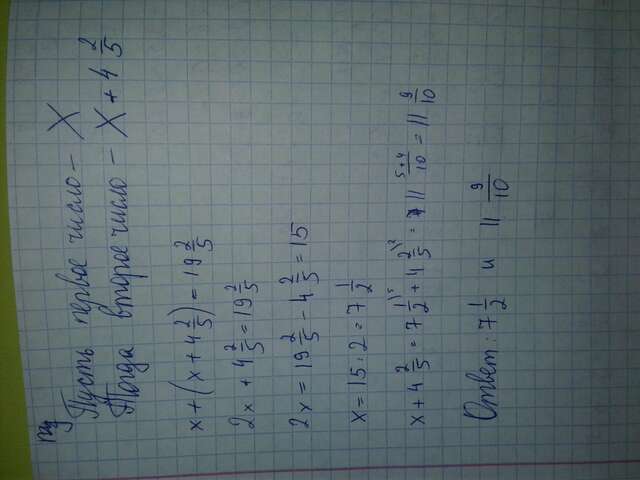 Пусть первое число – X
Тогда второе число – X + 4 2/5
x + (x + 4 2/5) = 19 2/5
2x + 4 2/5 = 19 2/5
2x = 19 2/5 - 4 2/5 = 15
x = 15 : 2 = 7 1/2
x + 4 2/5 = 7 1/2 \5 + 4 2/5 \2 = 11 5+4/10 = 11 9/10
Ответ: 7 1/2 и 11 9/10